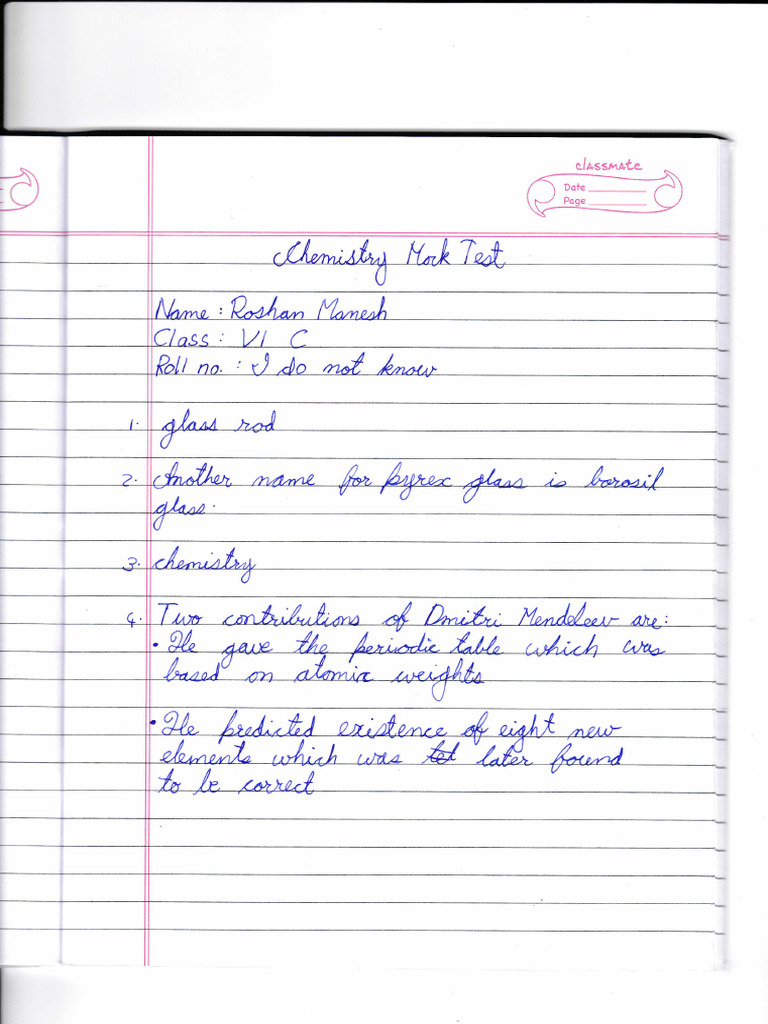 classmate
Date
Page
Chemistry Mock Test
Name : Roshan Manesh
Class : VI C
Roll no. : I do not know
1. glass rod
2. Another name for pyrex glass is borosil
glass.
3. chemistry
4. Two contributions of Dmitri Mendeleev are:
• He gave the periodic table which was
based on atomic weights
• He predicted existence of eight new
elements which was later found
to be correct